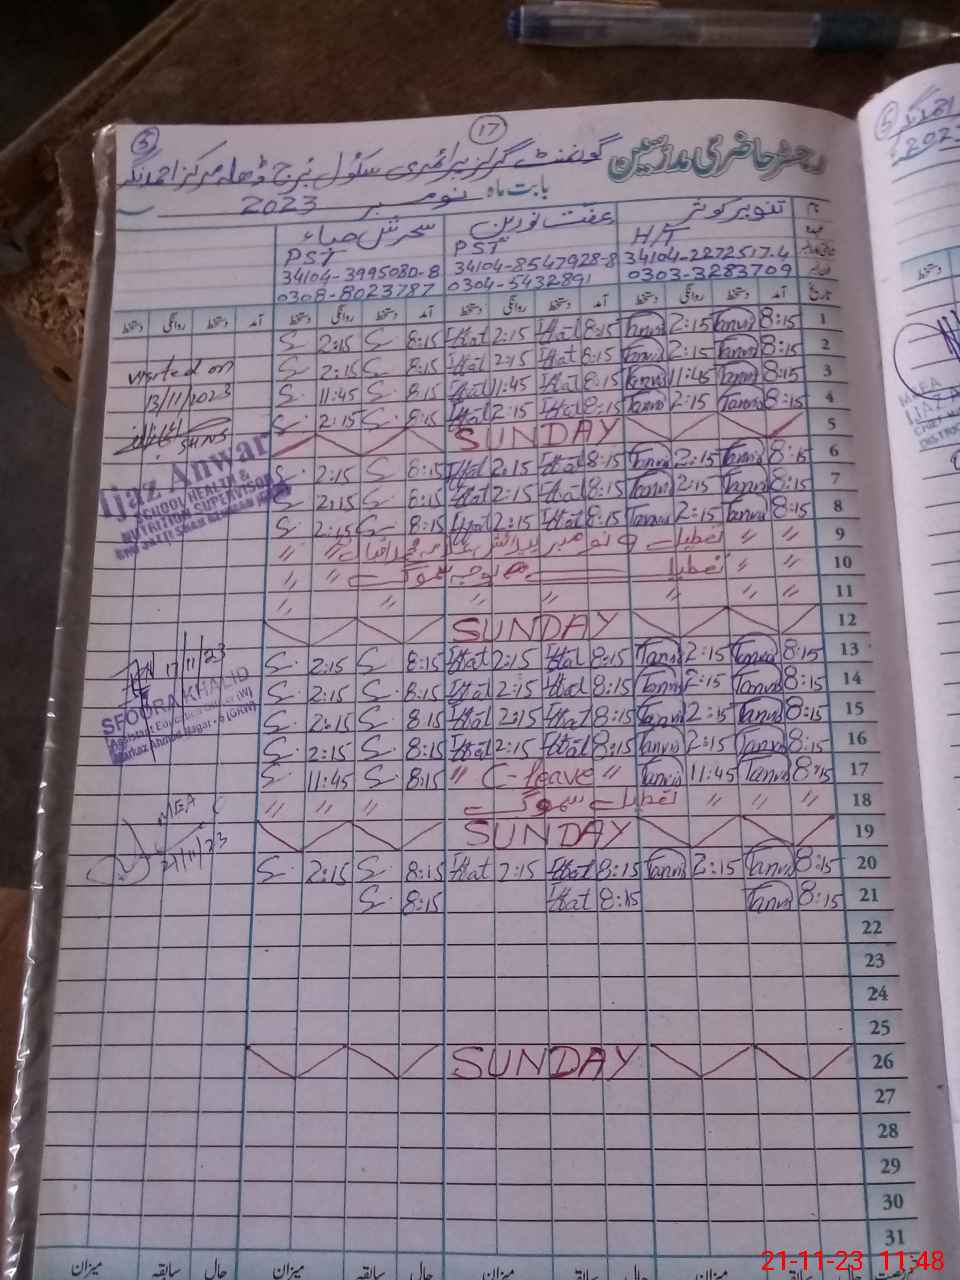 5
17
رجسٹر حاضری مدرسین
گورنمنٹ گرلز پرائمری سکول برج ڈھلہ مرکز احمدنگر
بابت ماہ نومبر 2023
نام تنویر کوثر عفت نورین سحرش ضیاء
عہدہ H/T PST PST
34104-2272517-4 34104-8547928-8 34104-3995080-8
0303-3283709 0304-5432891 0308-8023787
تاریخ آمد دستخط روانگی دستخط آمد دستخط روانگی دستخط آمد دستخط روانگی دستخط آمد دستخط روانگی دستخط
1 8:15 Tanvir 2:15 Tanvir 8:15 Iffat 2:15 Iffat 8:15 S 2:15 S
2 8:15 Tanvir 2:15 Tanvir 8:15 Iffat 2:15 Iffat 8:15 S 2:15 S
visited on
3 8:15 Tanvir 11:45 Tanvir 8:15 Iffat 11:45 Iffat 8:15 S 11:45 S
13/11/2023
4 8:15 Tanvir 2:15 Tanvir 8:15 Iffat 2:15 Iffat 8:15 S 2:15 S
SHNS
5 SUNDAY
Ijaz Anwar
SCHOOL HEALTH &
NUTRITION SUPERVISOR
6 8:15 Tanvir 2:15 Tanvir 8:15 Iffat 2:15 Iffat 8:15 S 2:15 S
7 8:15 Tanvir 2:15 Tanvir 8:15 Iffat 2:15 Iffat 8:15 S 2:15 S
8 8:15 Tanvir 2:15 Tanvir 8:15 Iffat 2:15 Iffat 8:15 S 2:15 S
9 〃 〃 تعطیل 9 نومبر پیدائش علامہ محمد اقبال 〃 〃
10 〃 〃 تعطیل بوجہ سموگ 〃 〃
11 〃 〃 〃 〃 〃 〃
12 SUNDAY
13 8:15 Tanvir 2:15 Tanvir 8:15 Iffat 2:15 Iffat 8:15 S 2:15 S
17/11/23
14 8:15 Tanvir 2:15 Tanvir 8:15 Iffat 2:15 Iffat 8:15 S 2:15 S
SFOORA KHALID
Assistant Education Officer (W)
Markaz Ahmad Nagar - 6 (GRW)
15 8:15 Tanvir 2:15 Tanvir 8:15 Iffat 2:15 Iffat 8:15 S 2:15 S
16 8:15 Tanvir 2:15 Tanvir 8:15 Iffat 2:15 Iffat 8:15 S 2:15 S
17 8:15 Tanvir 11:45 Tanvir 〃 C-leave 〃 8:15 S 11:45 S
18 〃 〃 تعطیل سموگ 〃 〃 〃
MEA
21/11/23
19 SUNDAY
20 8:15 Tanvir 2:15 Tanvir 8:15 Iffat 2:15 Iffat 8:15 S 2:15 S
21 8:15 Tanvir 8:15 Iffat 8:15 S
22
23
24
25
26 SUNDAY
27
28
29
30
31
حال سابقہ میزان حال سابقہ میزان حال سابقہ میزان حال سابقہ میزان
5
احمدنگر
2023
MEA
21-11-23 11:48